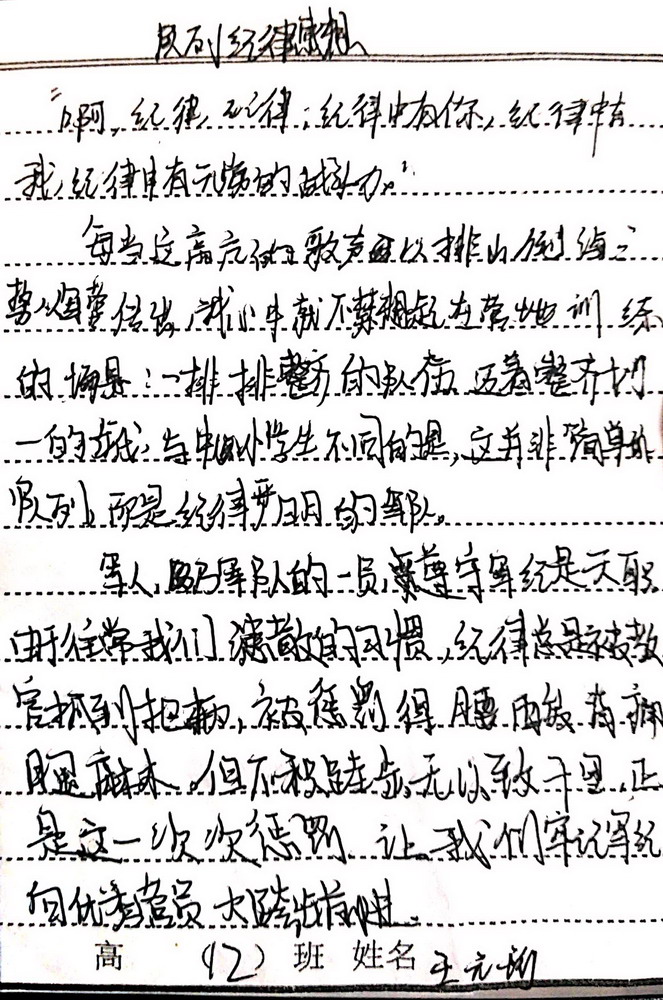 队列纪律感想
“啊，纪律，纪律；纪律中有你，纪律中有
我，纪律中有无穷的战斗力。”
每当这高亢的歌声再以排山倒海之
势 我心中就不禁想起在营地训练
的场景：一排排整齐的队伍，迈着整齐划
一的 ，与中小学生不同的是，这并非简单的
队列，而是纪律严明的军队。
军人，军队的一员，遵守军纪是天职。
由于往常我们懒散的习惯，纪律总是被教
官抓到把柄，被惩罚得腰酸背痛
腿麻木。但不积跬步，无以致千里，正
是这一次次惩罚 让我们牢记军纪
向优秀营员大踏步前进。
高 (12) 班 姓名 王元